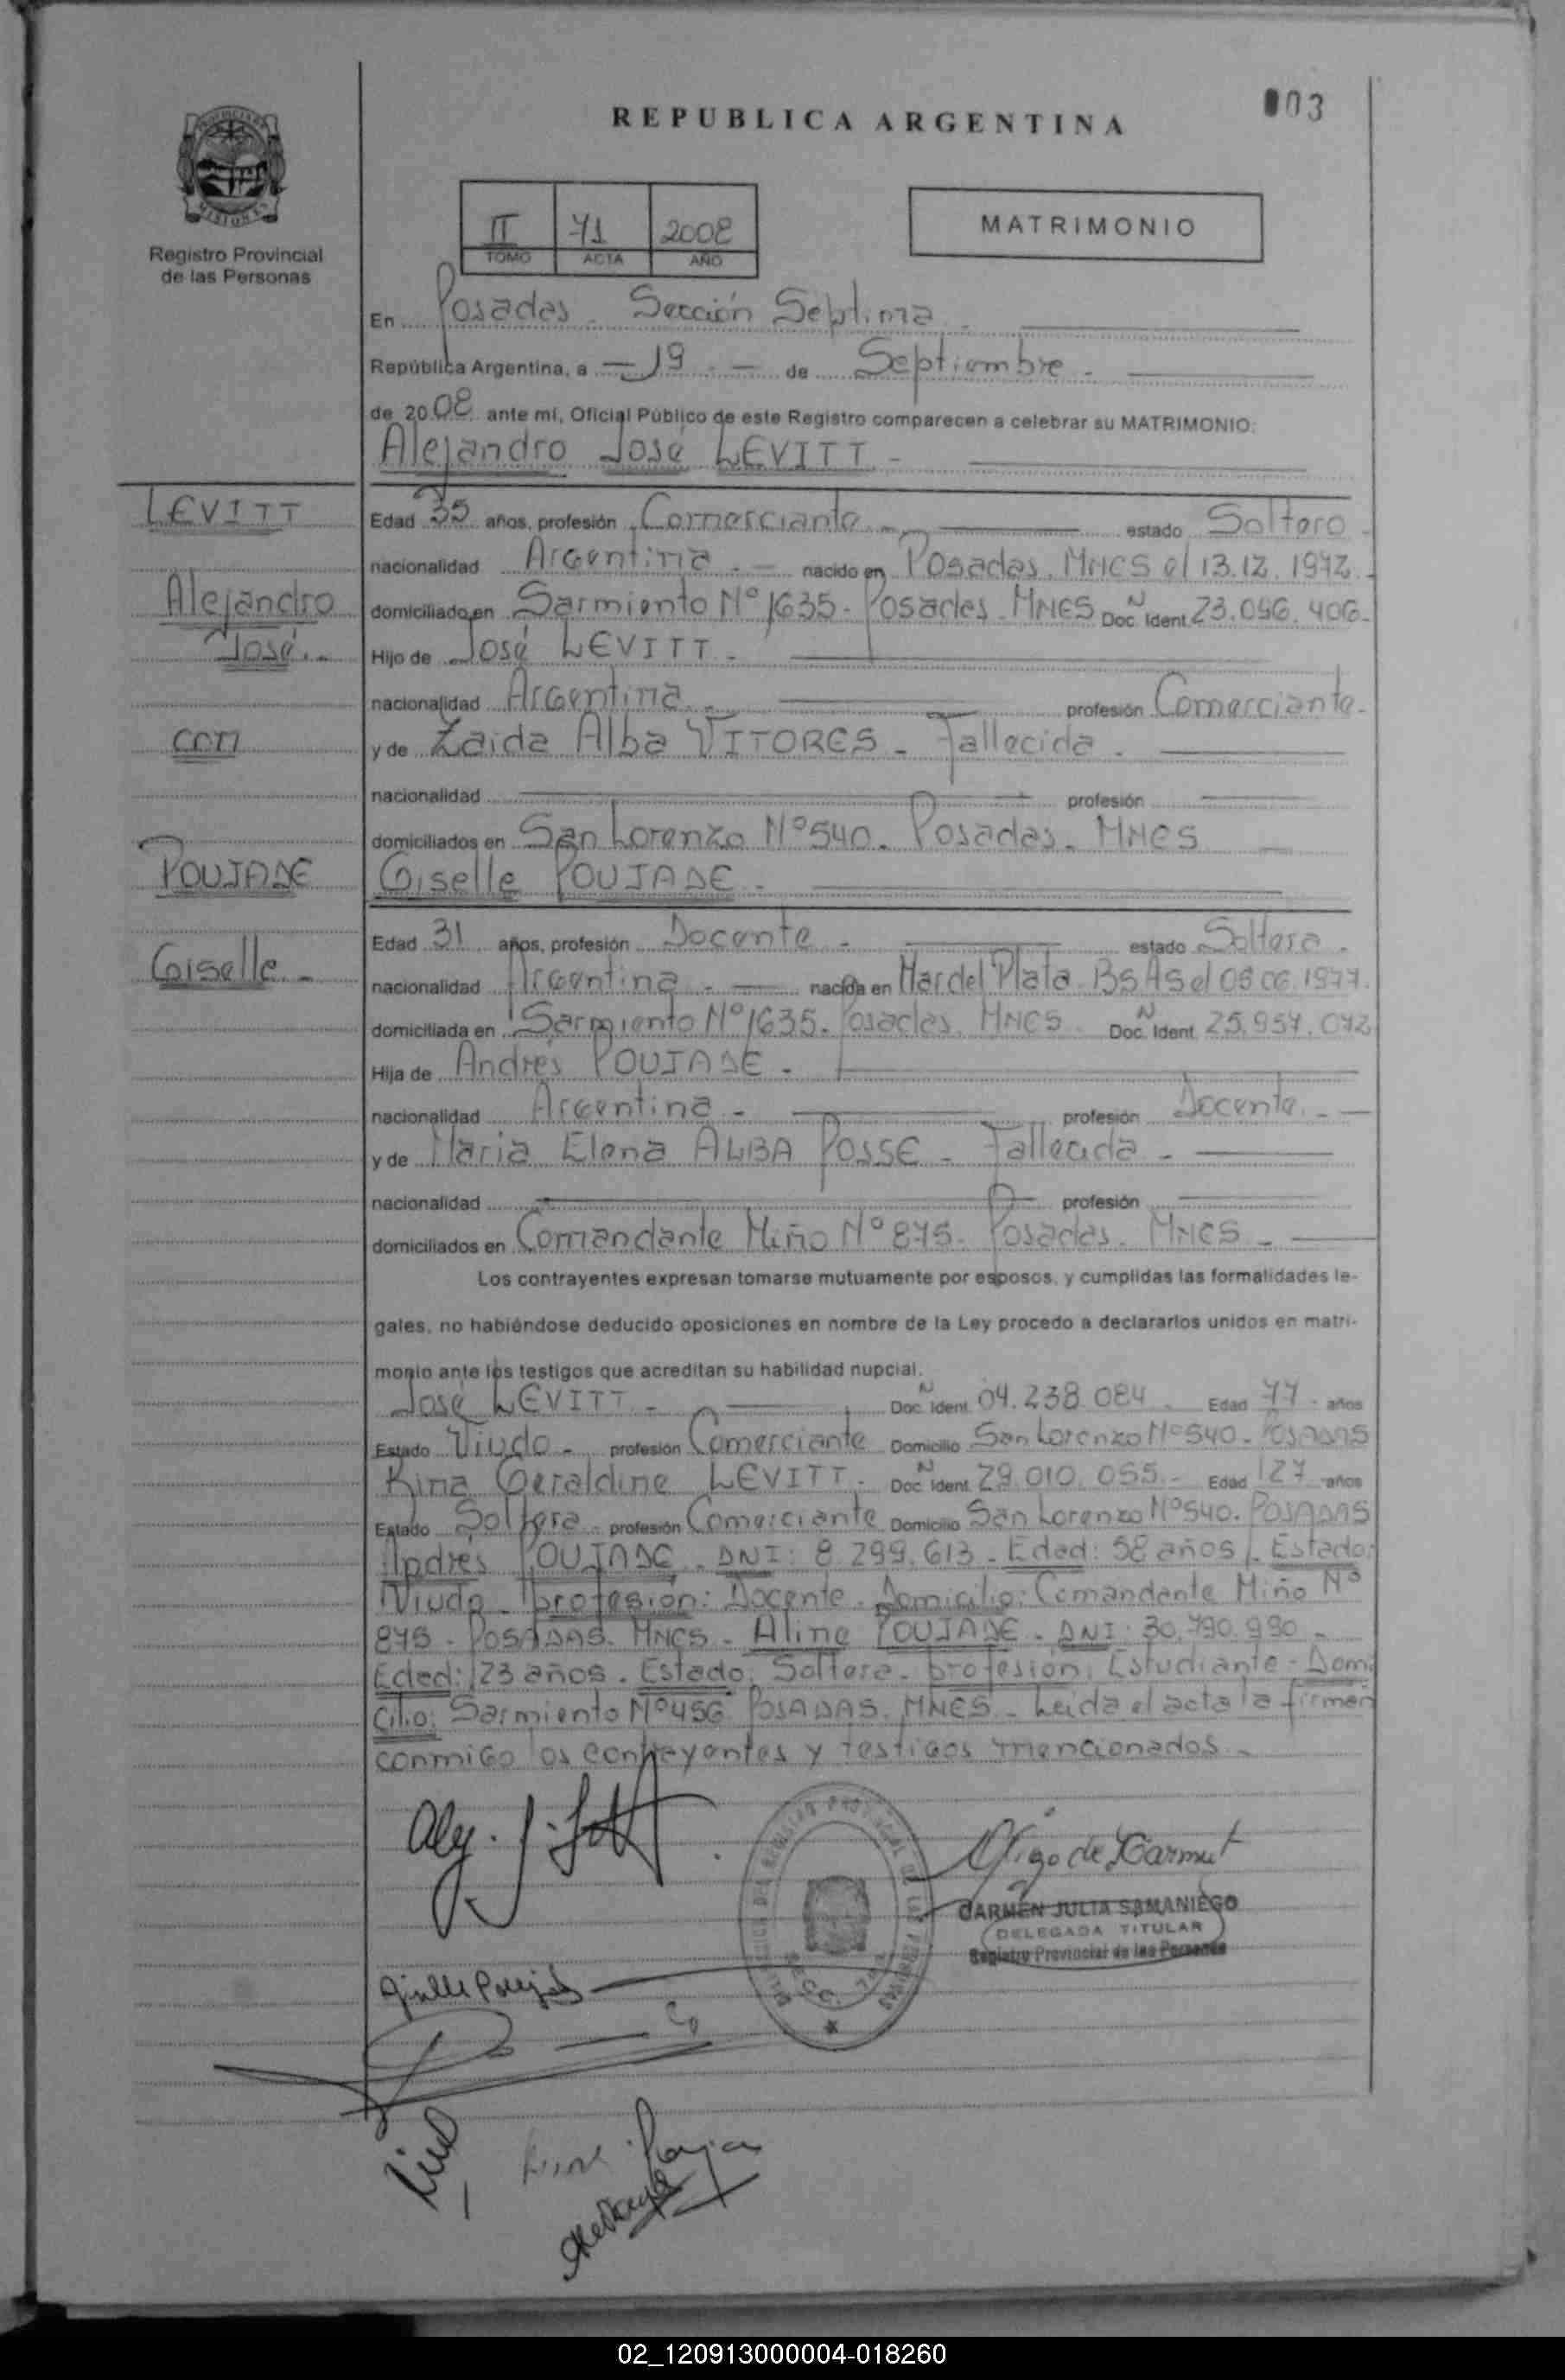 003
REPUBLICA ARGENTINA
MISIONES
Registro Provincial
de las Personas
II 71 2008
TOMO ACTA AÑO
MATRIMONIO
En Posadas - Sección Septima -
República Argentina, a - 19 - - de Septiembre -
de 2008 ante mí, Oficial Público de este Registro comparecen a celebrar su MATRIMONIO:
Alejandro José LEVITT -
LEVITT
Alejandro
José.-
con
POUJADE
Giselle.-
Edad 35 años, profesión Comerciante - estado Soltero -
nacionalidad Argentina - nacido en Posadas. MNES el 13.12.1972.-
domiciliado en Sarmiento Nº 1635 - Posadas - MNES Doc. N Ident 23.096.406-
Hijo de José LEVITT -
nacionalidad Argentina - profesión Comerciante-
y de Zaida Alba VITORES - Fallecida -
nacionalidad profesión
domiciliados en San Lorenzo Nº 540. Posadas - MNES
Giselle POUJADE -
Edad 31 años, profesión Docente - estado Soltera -
nacionalidad Argentina - nacida en Mar del Plata - BsAs el 06.1977.
domiciliada en Sarmiento Nº 1635. Posadas. MNES. Doc. N Ident 25.957.072
Hija de Andrés POUJADE -
nacionalidad Argentina - profesión Docente. -
y de Maria Elena ALBA POSSE - Fallecida -
nacionalidad profesión
domiciliados en Comandante Miño Nº 875 - Posadas - MNES -
Los contrayentes expresan tomarse mutuamente por esposos, y cumplidas las formalidades le-
gales, no habiéndose deducido oposiciones en nombre de la Ley procedo a declararlos unidos en matri-
monio ante los testigos que acreditan su habilidad nupcial.
José LEVITT - Doc. N Ident 04.238.084 - Edad 77 - años
Estado Viudo - profesión Comerciante Domicilio San Lorenzo Nº 540 - POSADAS
Kina Geraldine LEVITT - Doc. N Ident 29.010.055 - Edad 27 años
Estado Soltera - profesión Comerciante Domicilio San Lorenzo Nº 540. POSADAS
Andrés POUJADE - DNI: 8.299.613 - Edad: 58 años - Estado:
Viudo - profesión: Docente - Domicilio: Comandante Miño Nº
875 - POSADAS. MNES - Aline POUJADE - DNI: 30.790.990 -
Edad: 23 años - Estado: Soltera - profesión: Estudiante - Domi
cilio: Sarmiento Nº 456. POSADAS. MNES - Leida el acta la firman
conmigo los contrayentes y testigos mencionados -
CARMEN JULIA SAMANIEGO
DELEGADA TITULAR
Registro Provincial de las Personas
02_120913000004-018260